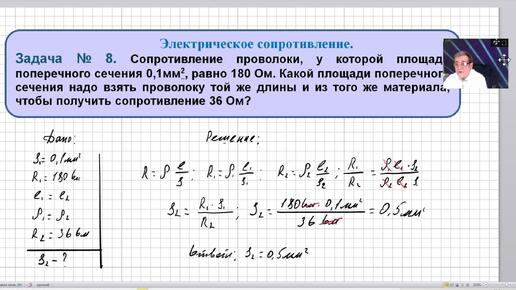 Электрическое сопротивление.
Задача № 8. Сопротивление проволоки, у которой площадь
поперечного сечения 0,1мм², равно 180 Ом. Какой площади поперечного
сечения надо взять проволоку той же длины и из того же материала,
чтобы получить сопротивление 36 Ом?
Дано: Решение:
S₁ = 0,1мм²
R₁ = 180 Ом
l₁ = l₂
ρ₁ = ρ₂
R₂ = 36 Ом
S₂ - ?
R = ρ l/S ; R₁ = ρ₁ l₁/S₁ ; R₂ = ρ₂ l₂/S₂ ; R₁/R₂ = ρ₁ l₁ · S₂/ρ₂ l₂ S₁
S₂ = R₁ · S₁/R₂ ; S₂ = 180 Ом · 0,1мм²/36 Ом = 0,5мм²
Ответ: S₂ = 0,5мм²